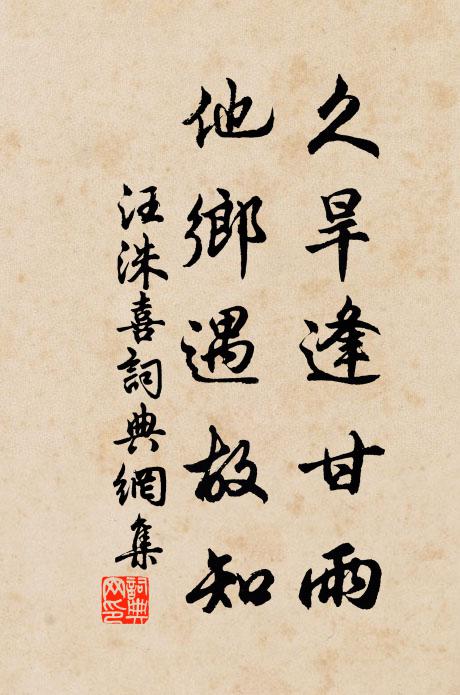 久旱逢甘雨
他鄉遇故知
汪洙喜詞典網集
詞典網印